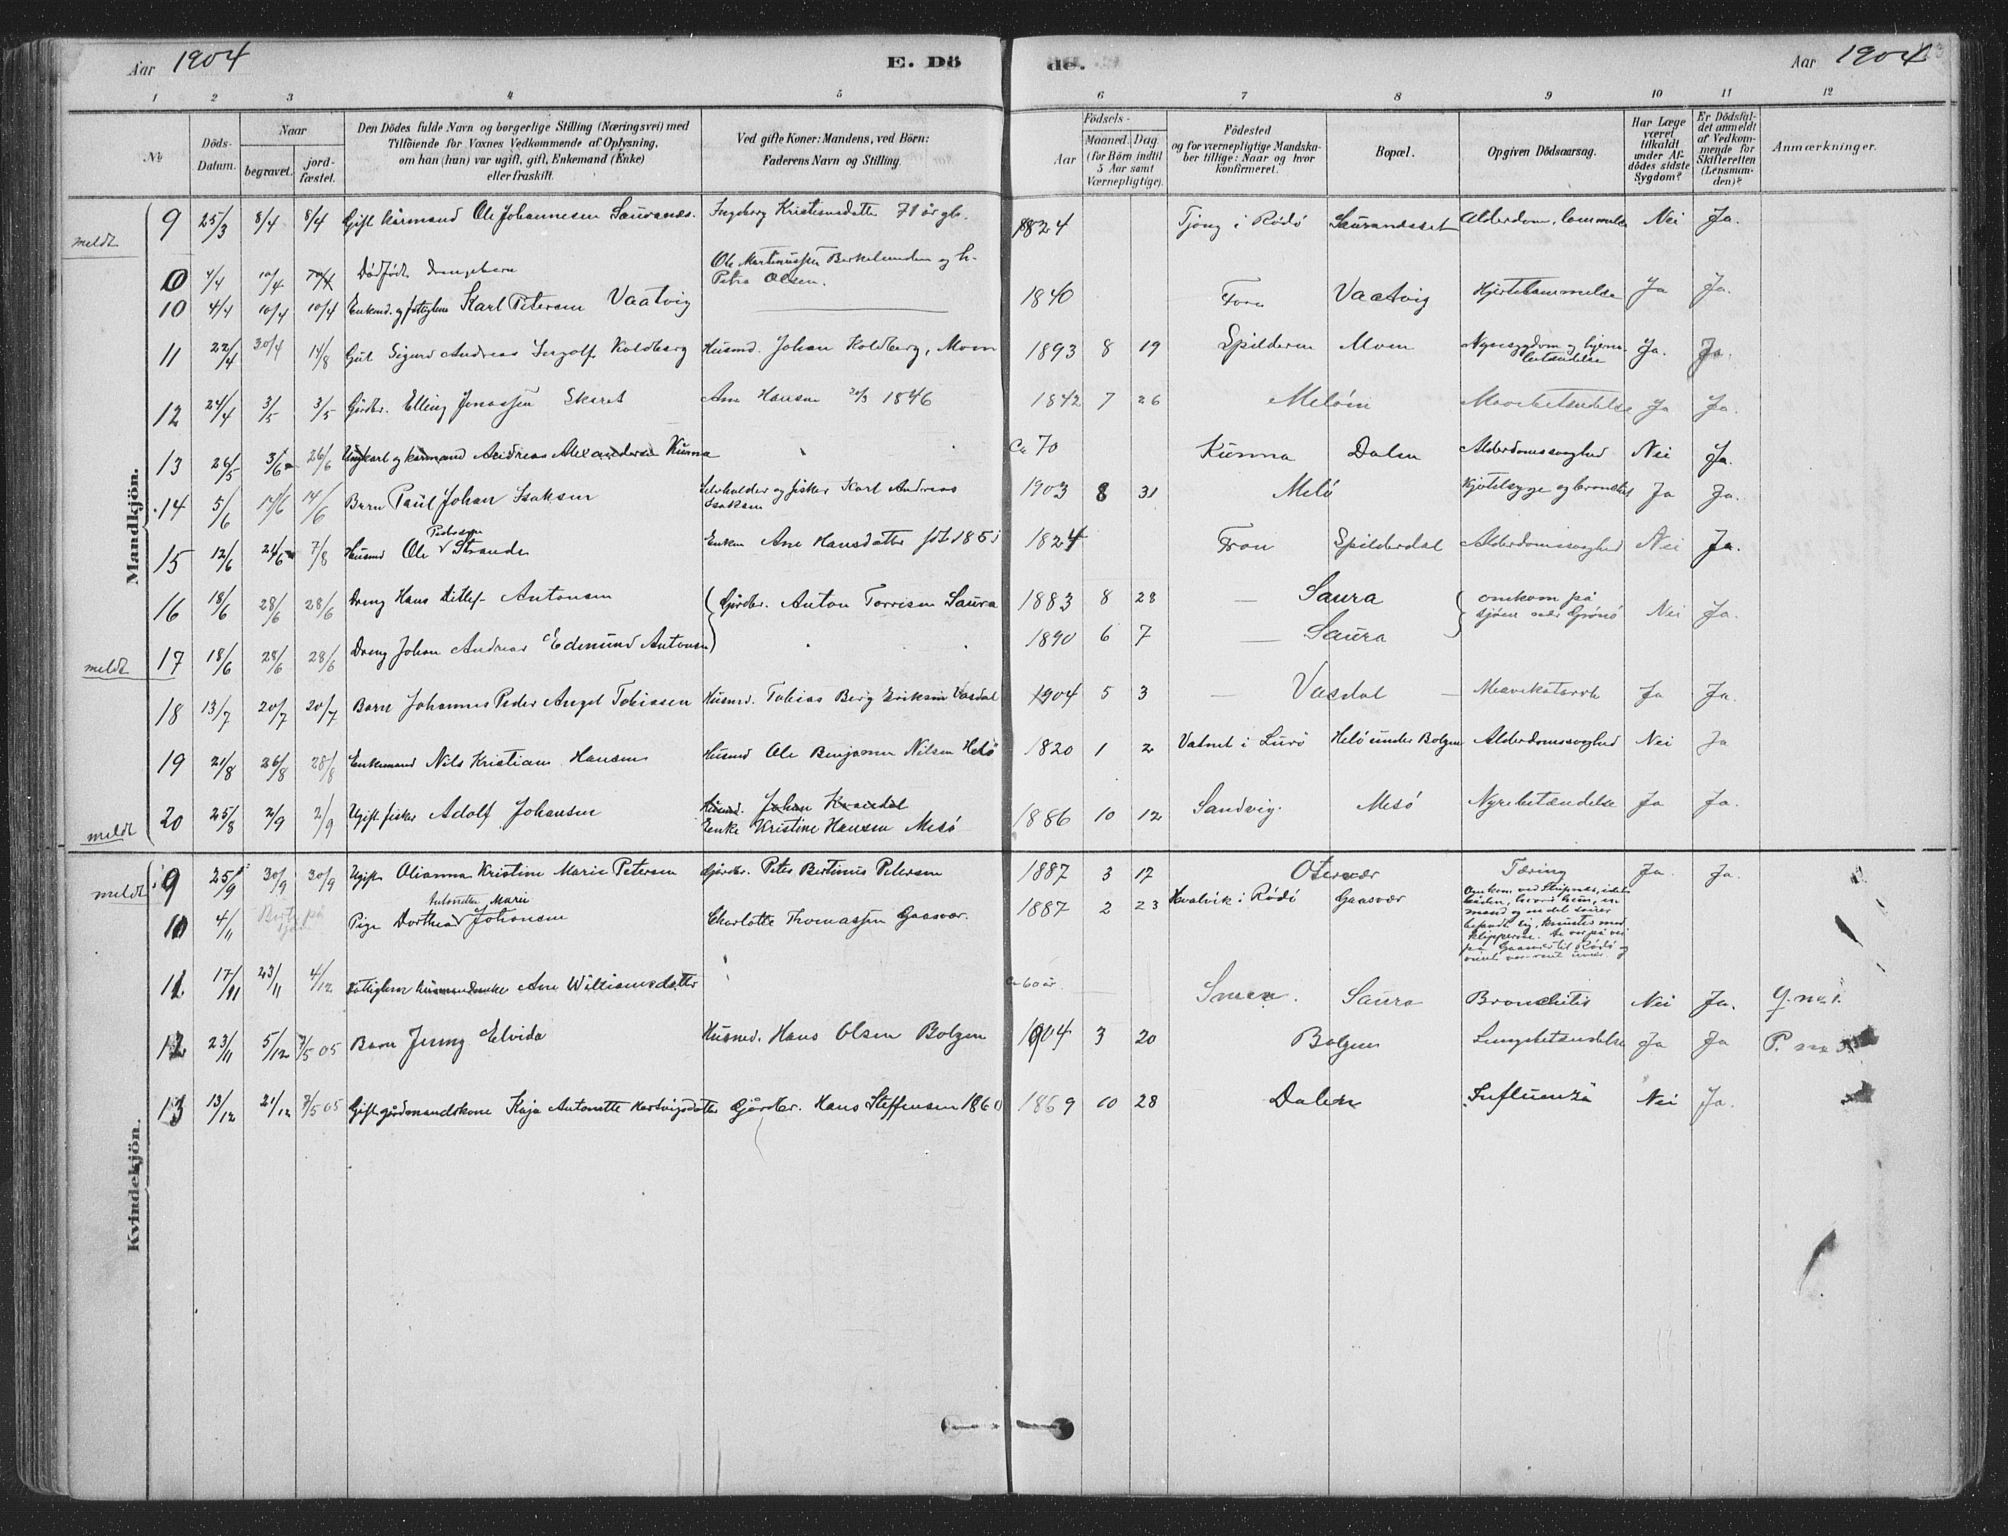 Aar 1904 E. Dö de. Aar 1904
1 2 3 4 5 6 7 8 9 10 11 12
No. Döds-Datum. Naar begravet. jord-fæstet. Den Dödes fulde Navn og borgerlige Stilling (Næringsvei) med Tilföiende for Voxnes Vedkommende af Oplysning, om han (hun) var ugift, gift, Enkemand (Enke) eller fraskilt. Ved gifte Koner: Mandens, ved Börn: Faderens Navn og Stilling. Födsels- Aar Maaned. Dag. (for Börn indtil 5 Aar samt Værnepligtige). Födested og for værnepligtige Mandskaber tillige: Naar og hvor konfirmeret. Bopæl. Opgiven Dödsaarsag. Har Læge været tilkaldt under Afdödes sidste Sygdom? Er Dödsfaldet anmeldt af Vedkommende for Skifteretten (Lensmanden)? Anmærkninger.
Mandkjön.
meldt 9 25/3 8/4 8/4 Gift kårmand Ole Johannesen Saurandset Ingeborg Kristensdatter 71 år gl. 1824 Tjong i Rödö Saurandset Alderdom, Nei Ja.
0 4/4 10/4 10/4 Dödfödt drengebarn Ole Martinussen Berkelunden og h. Petra Olsen.
10 4/4 10/4 10/4 Enkemd. og fattiglem Karl Petersen Vaatvig 1840 Foro Vaatvig Hjertelammelse Ja Ja.
11 22/4 30/4 14/8 Gut Sigurd Andreas Ingolf Koldberg Husmd. Johan Koldberg, Moen 1893 8 19 Spilderen Moen Nyresygdom og hjernebetændelse Ja. Ja.
12 24/4 3/5 3/5 Gårdbr. Elling Jonassen Skaret Ane Hansen 20/3 1846 1842 7 26 Melöin Mavebetændelse Ja Ja.
13 26/5 3/6 26/6 Ungkarl og kårmand Andreas Alexandersen Kunna Ca 70 Kunna Dalen Alderdomssvaghed Nei Ja.
14 5/6 17/6 17/6 Barn Paul Johan Isaksen Selvholder og fisker Karl Andreas Isaksen 1903 8 31 Melö Kjertelsyge og bronchit Ja Ja.
15 12/6 24/6 7/8 Husmd Ole Pedersen Strande Enken Ane Hansdatter föt 1851 1824 Forön Spilderdal Alderdomssvaghed Nei Ja.
16 18/6 28/6 28/6 Dreng Hans Ditlef Antonsen Gårdbr. Anton Torrisen Saura 1883 8 28 — Saura omkom på sjöen ved Grönö Nei Ja.
meldt 17 18/6 28/6 28/6 Dreng Johan Andreas Edmund Antonsen 1890 6 7 — Saura
18 13/7 20/7 20/7 Barn Johannes Peder Angel Tobiassen Husmd. Tobias Berg Eriksen Vasdal 1904 5 3 — Vasdal Mavekatarrh Ja Ja.
19 21/8 26/8 28/8 Enkemand Nils Kristian Hansen Husmd Ole Benjamin Nilsen Helö 1820 1 2 Vatnet i Lurö Helö under Bolgen Alderdomssvaghed Nei Ja
meldt 20 25/8 2/9 2/9 Ugift fisker Adolf Johansen Husmd. Johan Enke Kristine Hansen Mesö 1886 10 12 Sandvig. Mesö Nyrebetændelse Ja Ja.
Kvindekjön.
meldt 9 25/9 30/9 30/9 Ugift Olianna Kristine Marie Petersen Gårdbr. Peter Bertinus Petersen 1887 3 17 Otervær Tæring Ja. Ja.
10 4/11 Pige Dorthea Antonette Marie Johansen Charlotte Thomassen Gaasvær. 1887 2 23 Kvalvik i Rödö Gaasvær Omkom ved Stigenes, idet båden, hvori hun, en mand og en del sauer befandt sig, knustes mod klipperne. De var på vei på Gaasvær til Rödö og
11 17/11 23/11 4/12 Fattiglem husmandsenke Ane Williamsdatter Ca 60 år Saura Bronchitis Nei Ja.
12 23/11 5/12 7/5 05 Barn Jenny Elvida Husmd. Hans Olsen Bolgen 1904 3 20 Bolgen Lungebetændelse Ja Ja
13 13/12 21/12 7/5 05 Gift gårdmandskone Kaja Antonette Hartvigsdatter Gårdbr. Hans Steffensen 1860 1869 10 28 Dalen Influenza Nei Ja.